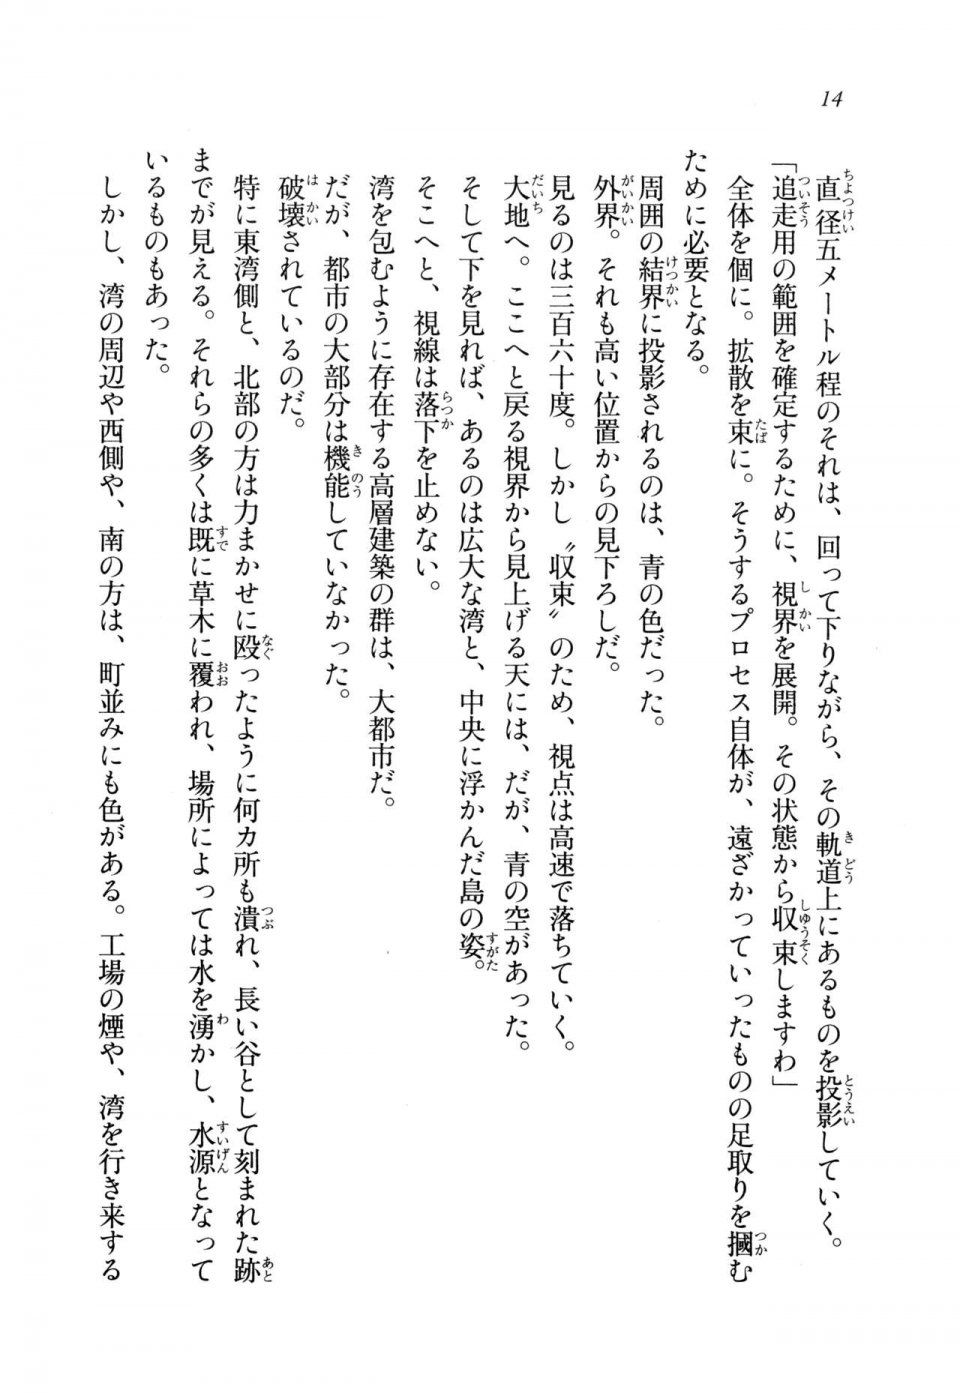 14
直径五メートル程のそれは、回って下りながら、その軌道上にあるものを投影していく。
「追走用の範囲を確定するために、視界を展開。その状態から収束しますわ」
全体を個に。拡散を束に。そうするプロセス自体が、遠ざかっていったものの足取りを摑む
ために必要となる。
周囲の結界に投影されるのは、青の色だった。
外界。それも高い位置からの見下ろしだ。
見るのは三百六十度。しかし〝収束〟のため、視点は高速で落ちていく。
大地へ。ここへと戻る視界から見上げる天には、だが、青の空があった。
そして下を見れば、あるのは広大な湾と、中央に浮かんだ島の姿。
そこへと、視線は落下を止めない。
湾を包むように存在する高層建築の群は、大都市だ。
だが、都市の大部分は機能していなかった。
破壊されているのだ。
特に東湾側と、北部の方は力まかせに殴ったように何カ所も潰れ、長い谷として刻まれた跡
までが見える。それらの多くは既に草木に覆われ、場所によっては水を湧かし、水源となって
いるものもあった。
しかし、湾の周辺や西側や、南の方は、町並みにも色がある。工場の煙や、湾を行き来する